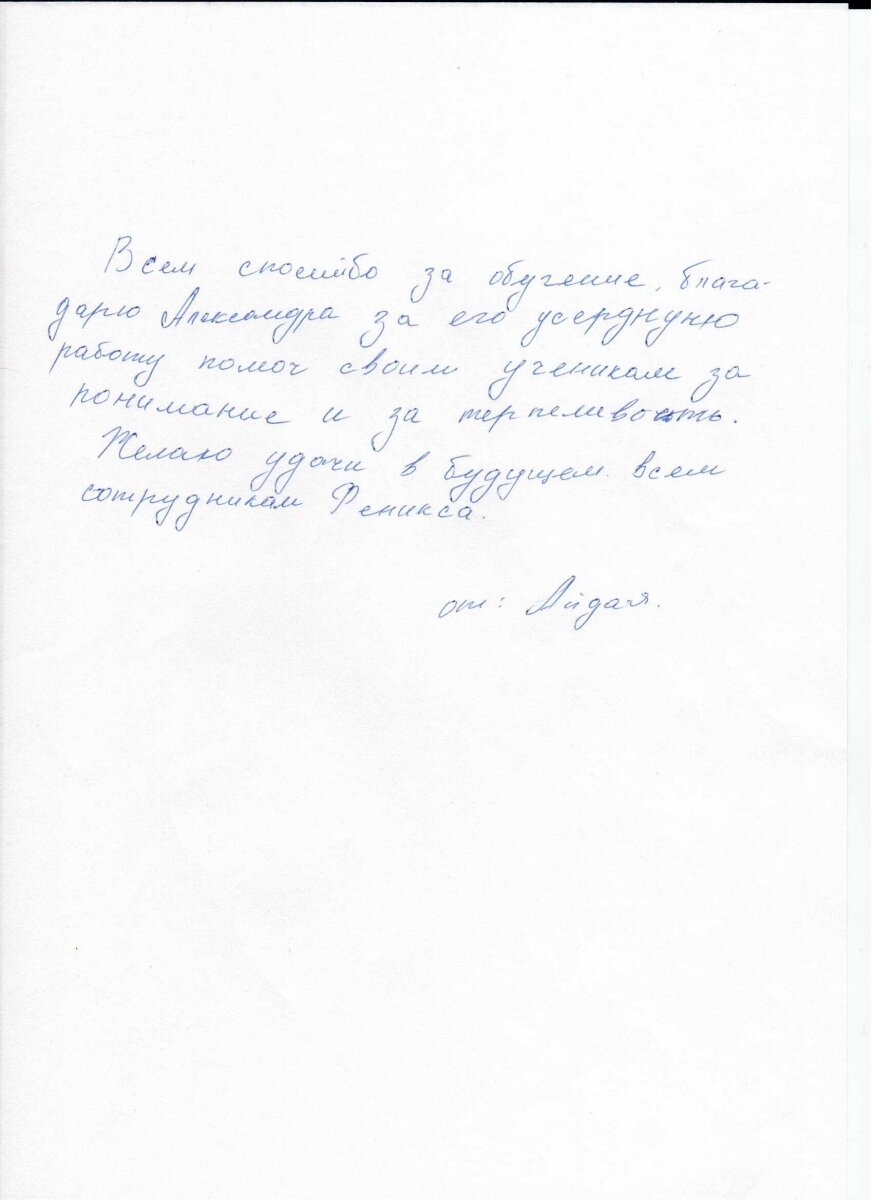 Всем спосибо за обучение, блага-
дарю Александра за его усерднуню
работу помоч своим ученикам за
понимание и за терпеливость.
Желаю удачи в будущем. всем
сотрудникам Феникса.
от: